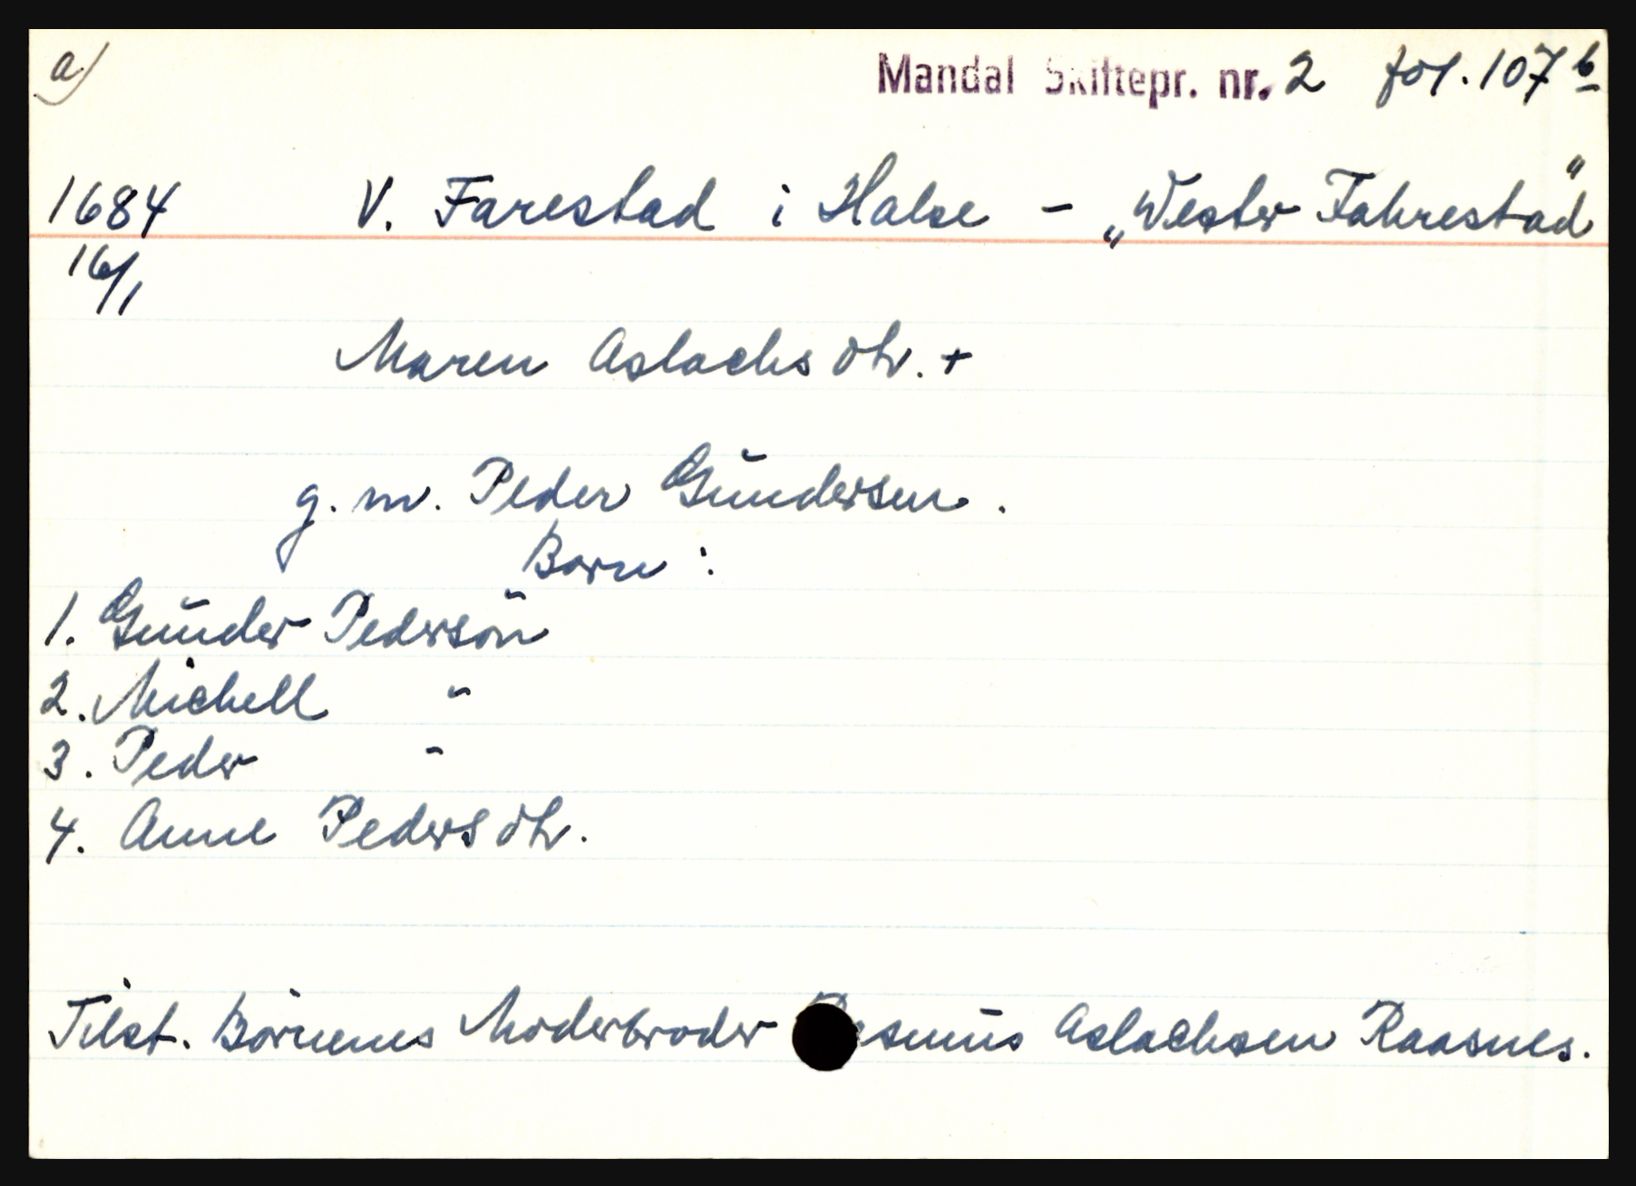 a)
Mandal Skiftepr. nr. 2 fol. 107 b
1684 V. Farestad i Halse - „Wester Fahrestad"
16/1
Maren Aslachsdtr. +
g. m. Peder Gŭndersen.
Børn:
1. Gŭnder Pedersøn
2. Michell "
3. Peder "
4. Anne Pedersdtr.
Tilst. Børnenes Moderbroder Rasmŭs Aslachsen Raasnes.